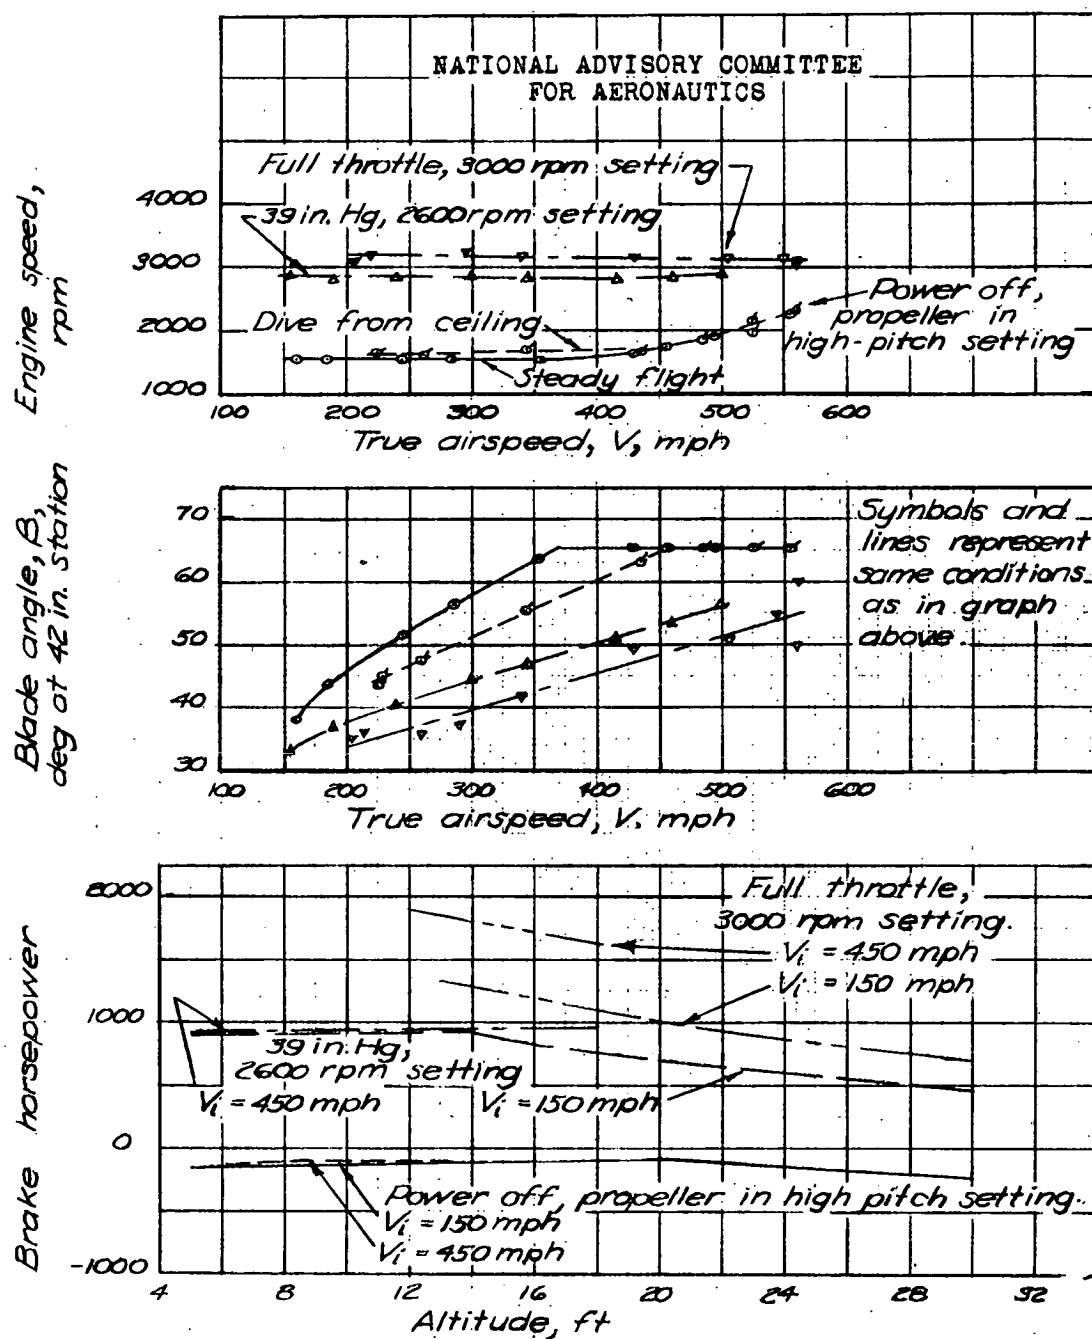 NATIONAL ADVISORY COMMITTEE
FOR AERONAUTICS
Engine speed,
rpm
4000
3000
2000
1000
Full throttle, 3000 rpm setting
39 in. Hg, 2600 rpm setting
Dive from ceiling
Steady flight
Power off,
propeller in
high-pitch setting
100 200 300 400 500 600
True airspeed, V, mph
Blade angle, β,
deg at 42 in. station
70
60
50
40
30
Symbols and
lines represent
same conditions
as in graph
above
100 200 300 400 500 600
True airspeed, V. mph
Brake horsepower
2000
1000
0
-1000
Full throttle,
3000 rpm setting.
Vi = 450 mph
Vi = 150 mph
39 in. Hg,
2600 rpm setting
Vi = 450 mph
Vi = 150 mph
Power off, propeller in high pitch setting.
Vi = 150 mph
Vi = 450 mph
4 8 12 16 20 24 28 32
Altitude, ft